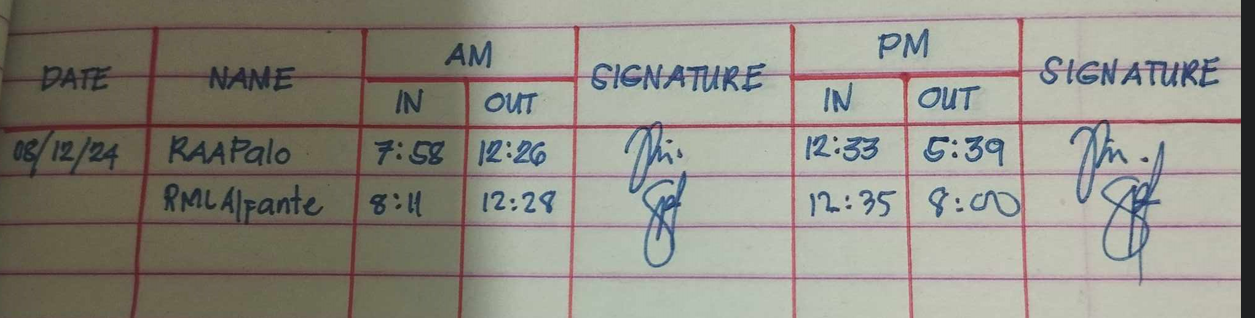 DATE NAME AM SIGNATURE PM SIGNATURE
IN OUT IN OUT
08/12/24 RAAPalo 7:58 12:26 12:33 5:39
RMLAlpante 8:11 12:28 12:35 8:00